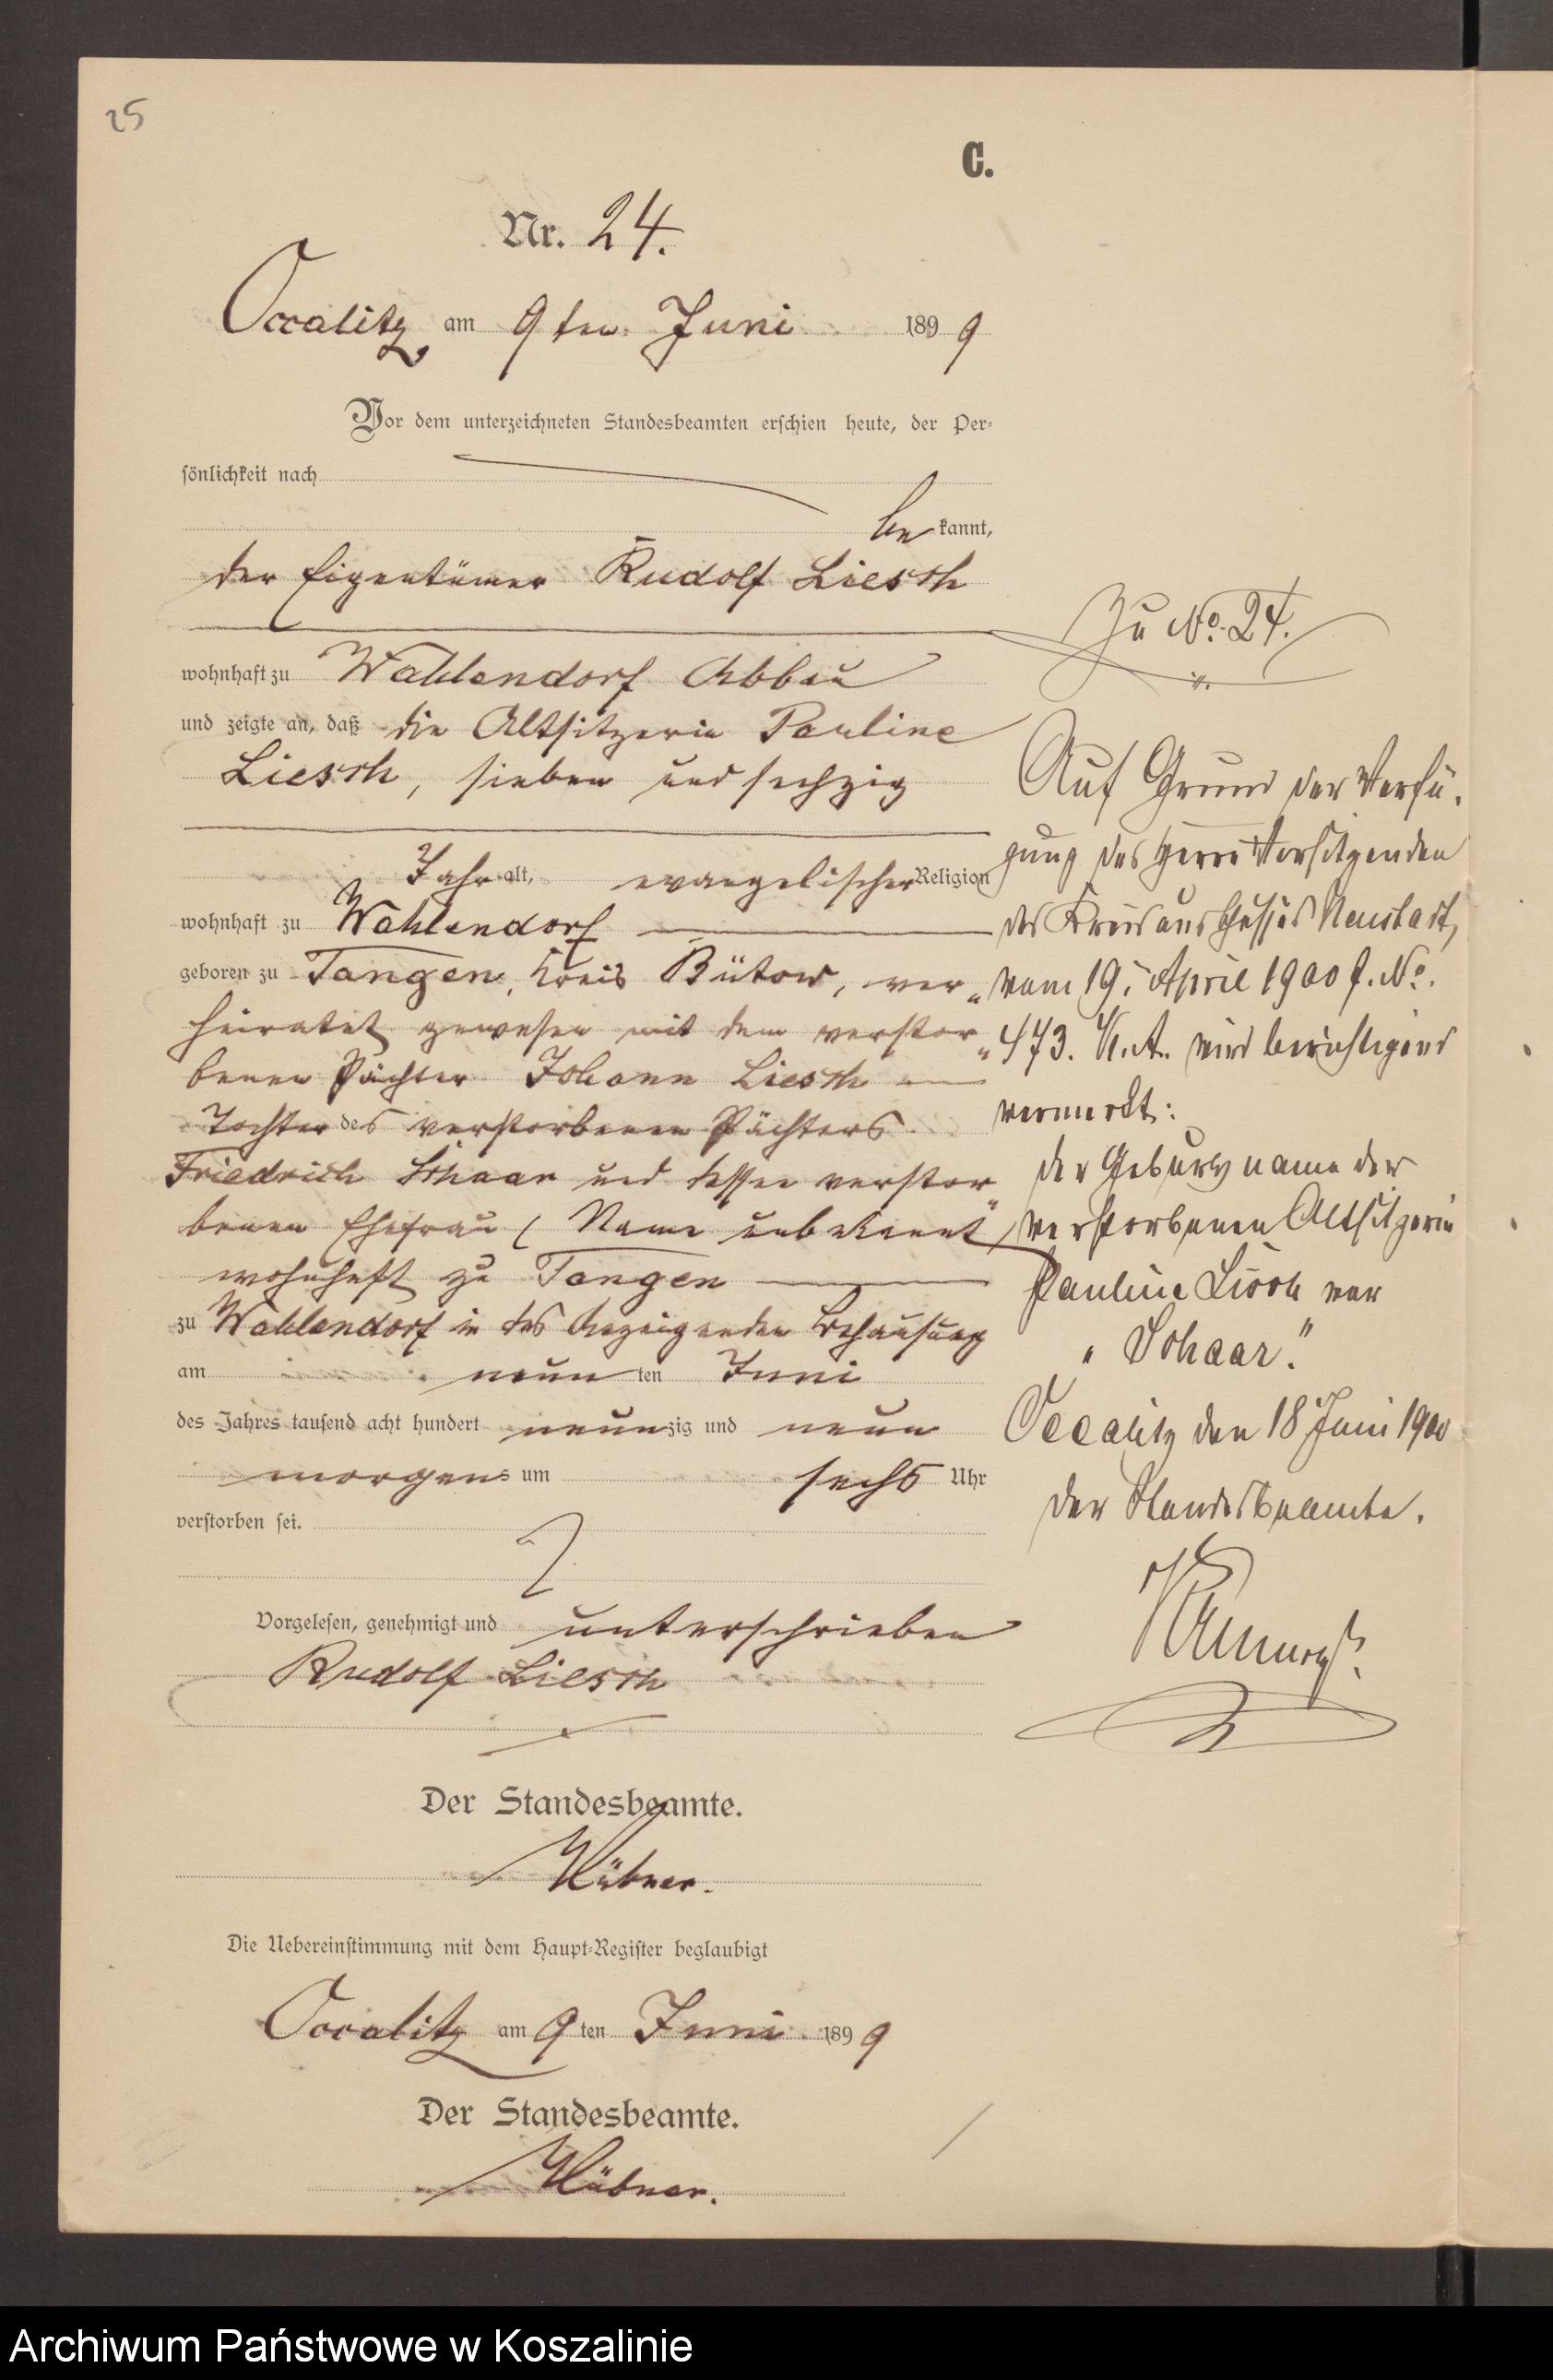 25
C.
Nr. 24.
Occalitz, am 9ten Juni 1899
Vor dem unterzeichneten Standesbeamten erschien heute, der Per-
sönlichkeit nach
be kannt,
der Eigentümer Rudolf Liesch
wohnhaft zu Wahlendorf Abbau
und zeigte an, daß die Altsitzerin Pauline
Liesch, sieben und sechzig
Jahr alt, evangelischer Religion
wohnhaft zu Wahlendorf
geboren zu Tangen, Kreis Bütow, ver„
heiratet gewesen mit dem verstor„
benen Pächter Johann Liesch
Tochter des verstorbenen Pächters
Friedrich Schaar und dessen verstor„
benen Ehefrau (Name unbekannt)
wohnhaft zu Tangen
zu Wahlendorf in des Anzeigenden Behausung
am neun ten Juni
des Jahres tausend acht hundert neunzig und neun
morgens um sechs Uhr
verstorben sei.
Vorgelesen, genehmigt und unterschrieben
Rudolf Liesch
Der Standesbeamte.
Hübner.
Die Uebereinstimmung mit dem Haupt-Register beglaubigt
Occalitz am 9ten Juni 1899
Der Standesbeamte.
Hübner.
Zu No. 24.
Auf Grund der Verfü-
gung des Herrn Vorsitzenden
des Kreisausschusses Neustadt,
vom 19. April 1900 J. No.
473. K.A. wird berichtigend
vermerkt:
der Geburtsname der
verstorbenen Altsitzerin
Pauline Liesch war
„Schaar."
Occalitz den 18 Juni 1900
Der Standesbeamte.
Archiwum Państwowe w Koszalinie